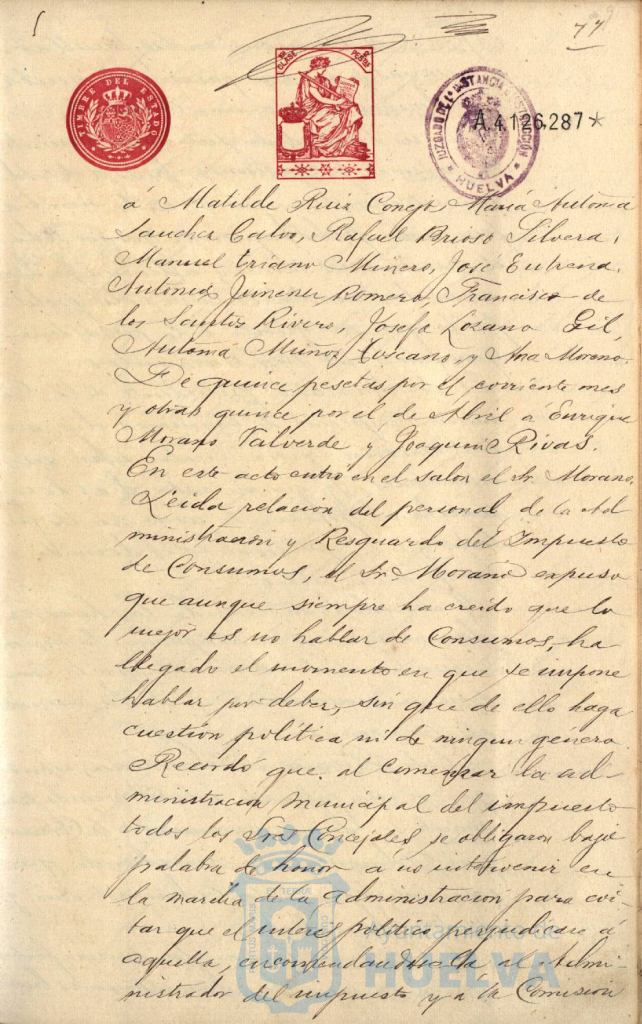 77
TIMBRE DEL ESTADO
CLASE PESETAS
JUZGADO DE 1ª INSTANCIA E INSTRUCCIÓN
HUELVA
A.4126.287*
á Matilde Ruiz Concep. María Antonia
Sanchez Calvo, Rafael Brioso Silvera,
Manuel Triano Minero, José Eutrena,
Antonio Jimenez Romero, Francisco de
los Santos Rivero, Josefa Lozano Gil,
Antonia Muñoz Toscano, y Ana Moreno.
De quince pesetas por el corriente mes
y otras quince por el de Abril á Enrique
Morano Valverde y Joaquin Rivas.
En este acto entró en el salon el Sr. Morano.
Leida relación del personal de la Ad
ministración y Resguardo del Impuesto
de Consumos, el Sr. Morano expuso
que aunque siempre ha creido que lo
mejor es no hablar de Consumos, ha
llegado el momento en que se impone
hablar por deber, sin que de ello haga
cuestión política ni de ningun género.
Recordó que al comenzar la ad-
ministracion municipal del impuesto
todos los Sres. Concejales se obligaron bajo
palabra de honor a no intervenir en
la marcha de la administracion para evi-
tar que el interes politico perjudicase á
aquella, encomendandosela al Admi-
nistrador del impuesto y á la Comisión
Ayuntamiento de
HUELVA